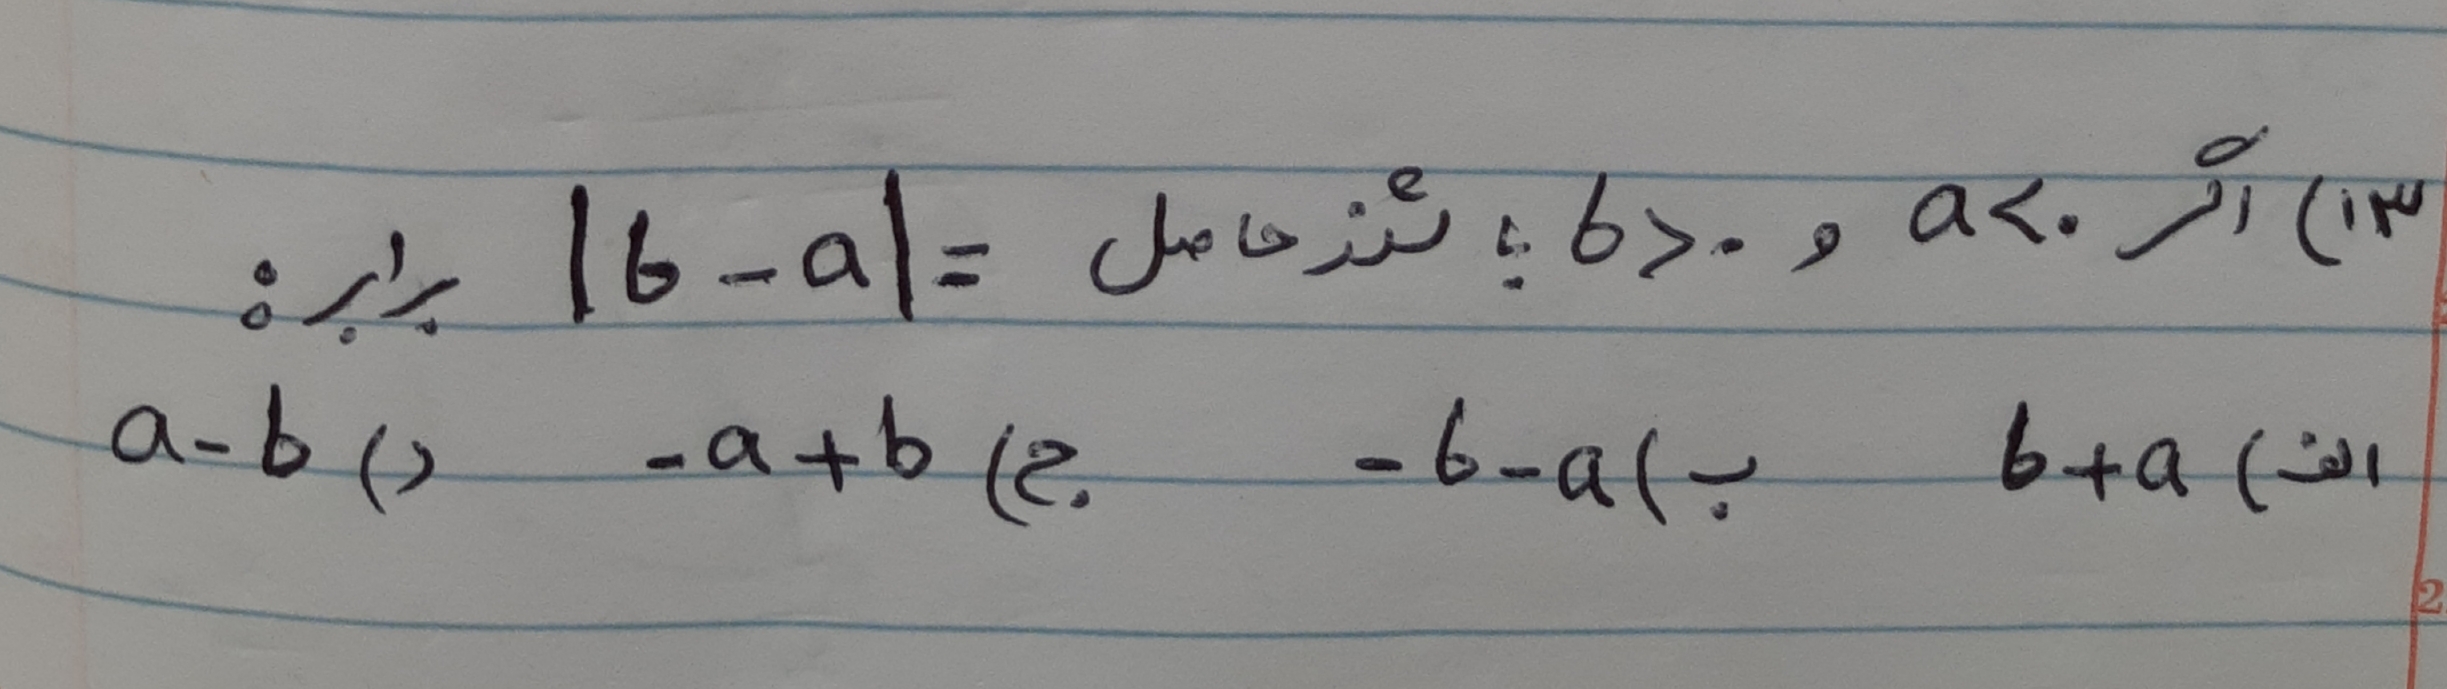 ۱۳) اگر a<۰ و b>۰ باشند حاصل |b-a|= برابره:
الف) b+a ب) -b-a ج) -a+b د) a-b